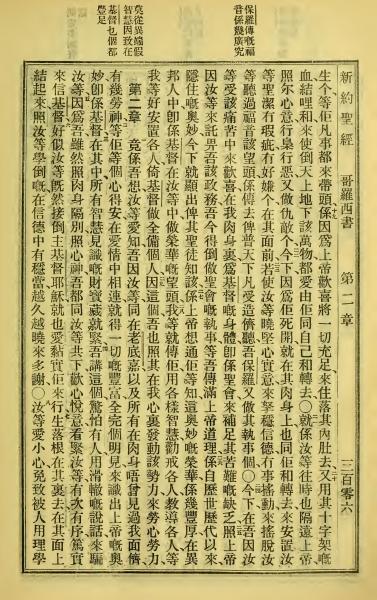 保羅傳嘅福
音係幾廣究
莫從異端假
智慧因致在
基督乜個都
豐足
新約聖經 哥羅西書 第二章 三百零六
生個等佢凡事都來帶頭係因爲上帝歡喜將一切充足來住落其內肚去又用其十字架嘅
血結哩和來使倒天上地下該萬物都愛由佢同自己和轉去○就係汝等往時也隔遠上帝
照尔心意行臬行惡又做仇敵个今下因爲佢死開就在其肉身上也同佢和轉去來安置汝
等聖潔有瑕疵冇好嫌个在其面前若使汝等曉堅心實意來孥穩信德冇事搖動來搖脫汝
等聽過福音該望頭係傳去俾普天下凡受造儕聽吾保羅又做其執事個○今下在吾因汝
等受該痛苦中來歡喜在我肉身裏爲基督嘅身體卽係聖會來補足其苦難嘅缺乏照上帝
因汝等來託畀吾該政務吾今得倒做聖會嘅執事等吾傳滿上帝道理係自歷世歷代以來
隱住嘅奧妙今下就顯出俾其聖徒知該係上帝想通佢等知這奧妙嘅榮華係幾豐厚在異
邦人中卽係基督在汝等中做榮華嘅望頭我等就傳佢用各樣智慧勸戒各人教導各人等
我等好安置各人倚基督做全備個人因這個吾也照其在我心裏發動該勢力來勞心勞力
第二章 竟係吾想汝等愛知吾因汝等同在老底嘉以及所有在肉身唔曾見過我面儕
有幾勞神等佢等個心得安在愛情中相連就得一切嘅豐富全完個明見來識出上帝嘅奧
妙卽係基督在其中所有智慧見識嘅財寶藏就緊吾講這個驚怕有人用滑轍嘅說話來騙
汝等因爲吾雖然照肉身隔別照心神吾都同汝等共下歡心悅意看緊汝等有次有序篤實
來信基督好似汝等旣然接倒主基督耶穌就也愛黏實佢來行生落根在其裏去在其面上
結起來照汝等學倒嘅在信德中有穩當越久越曉來多謝○汝等愛小心免致被人用理學